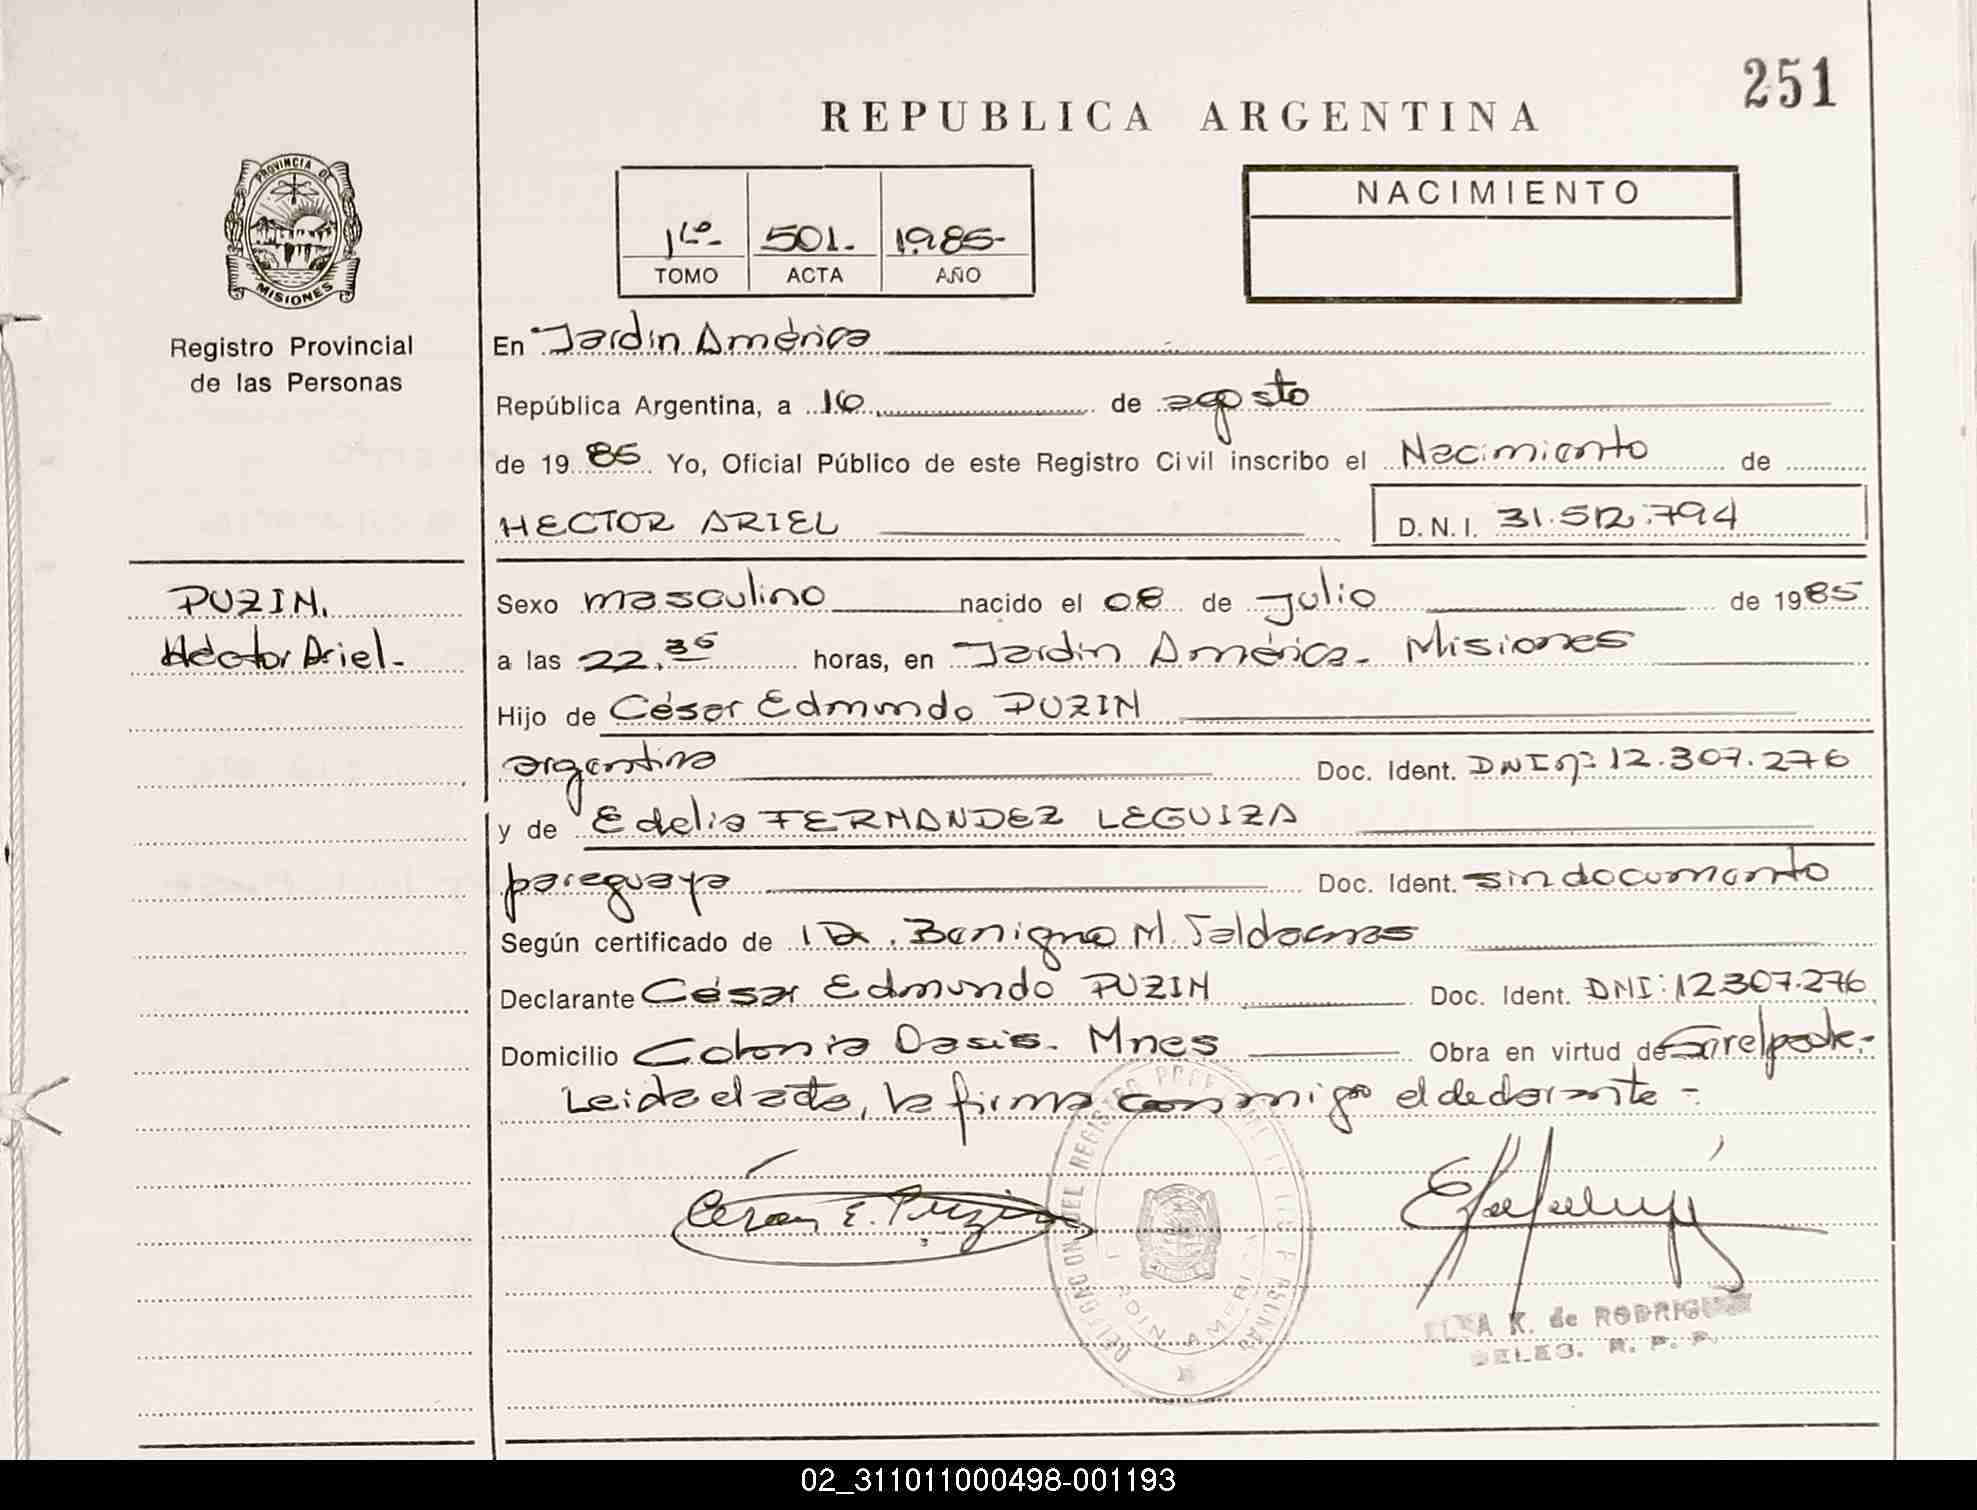 251
REPUBLICA ARGENTINA
PROVINCIA DE
MISIONES
Registro Provincial
de las Personas
1ro- 501.- 1985-
TOMO ACTA AÑO
NACIMIENTO
En Jardin América
República Argentina, a 16 de agosto
de 1985 Yo, Oficial Público de este Registro Civil inscribo el Nacimiento de
HECTOR ARIEL D.N.I. 31.512.794
PUZIN.
Héctor Ariel.-
Sexo masculino nacido el 08 de julio de 1985
a las 22,35 horas, en Jardin América- Misiones
Hijo de César Edmundo PUZIN
argentina Doc. Ident. DNI nº: 12.307.276
y de Edelia FERNANDEZ LEGUIZA
paraguaya Doc. Ident. sin documento
Según certificado de Benigno M.
Declarante César Edmundo PUZIN Doc. Ident. DNI: 12.307.276
Domicilio Colonia Oasis- Mnes Obra en virtud de
Leida el acta, la firma conmigo el declarante -
César E. Puzin
K. de RODRIGUEZ
DELEG. R. P. P.
02_311011000498-001193